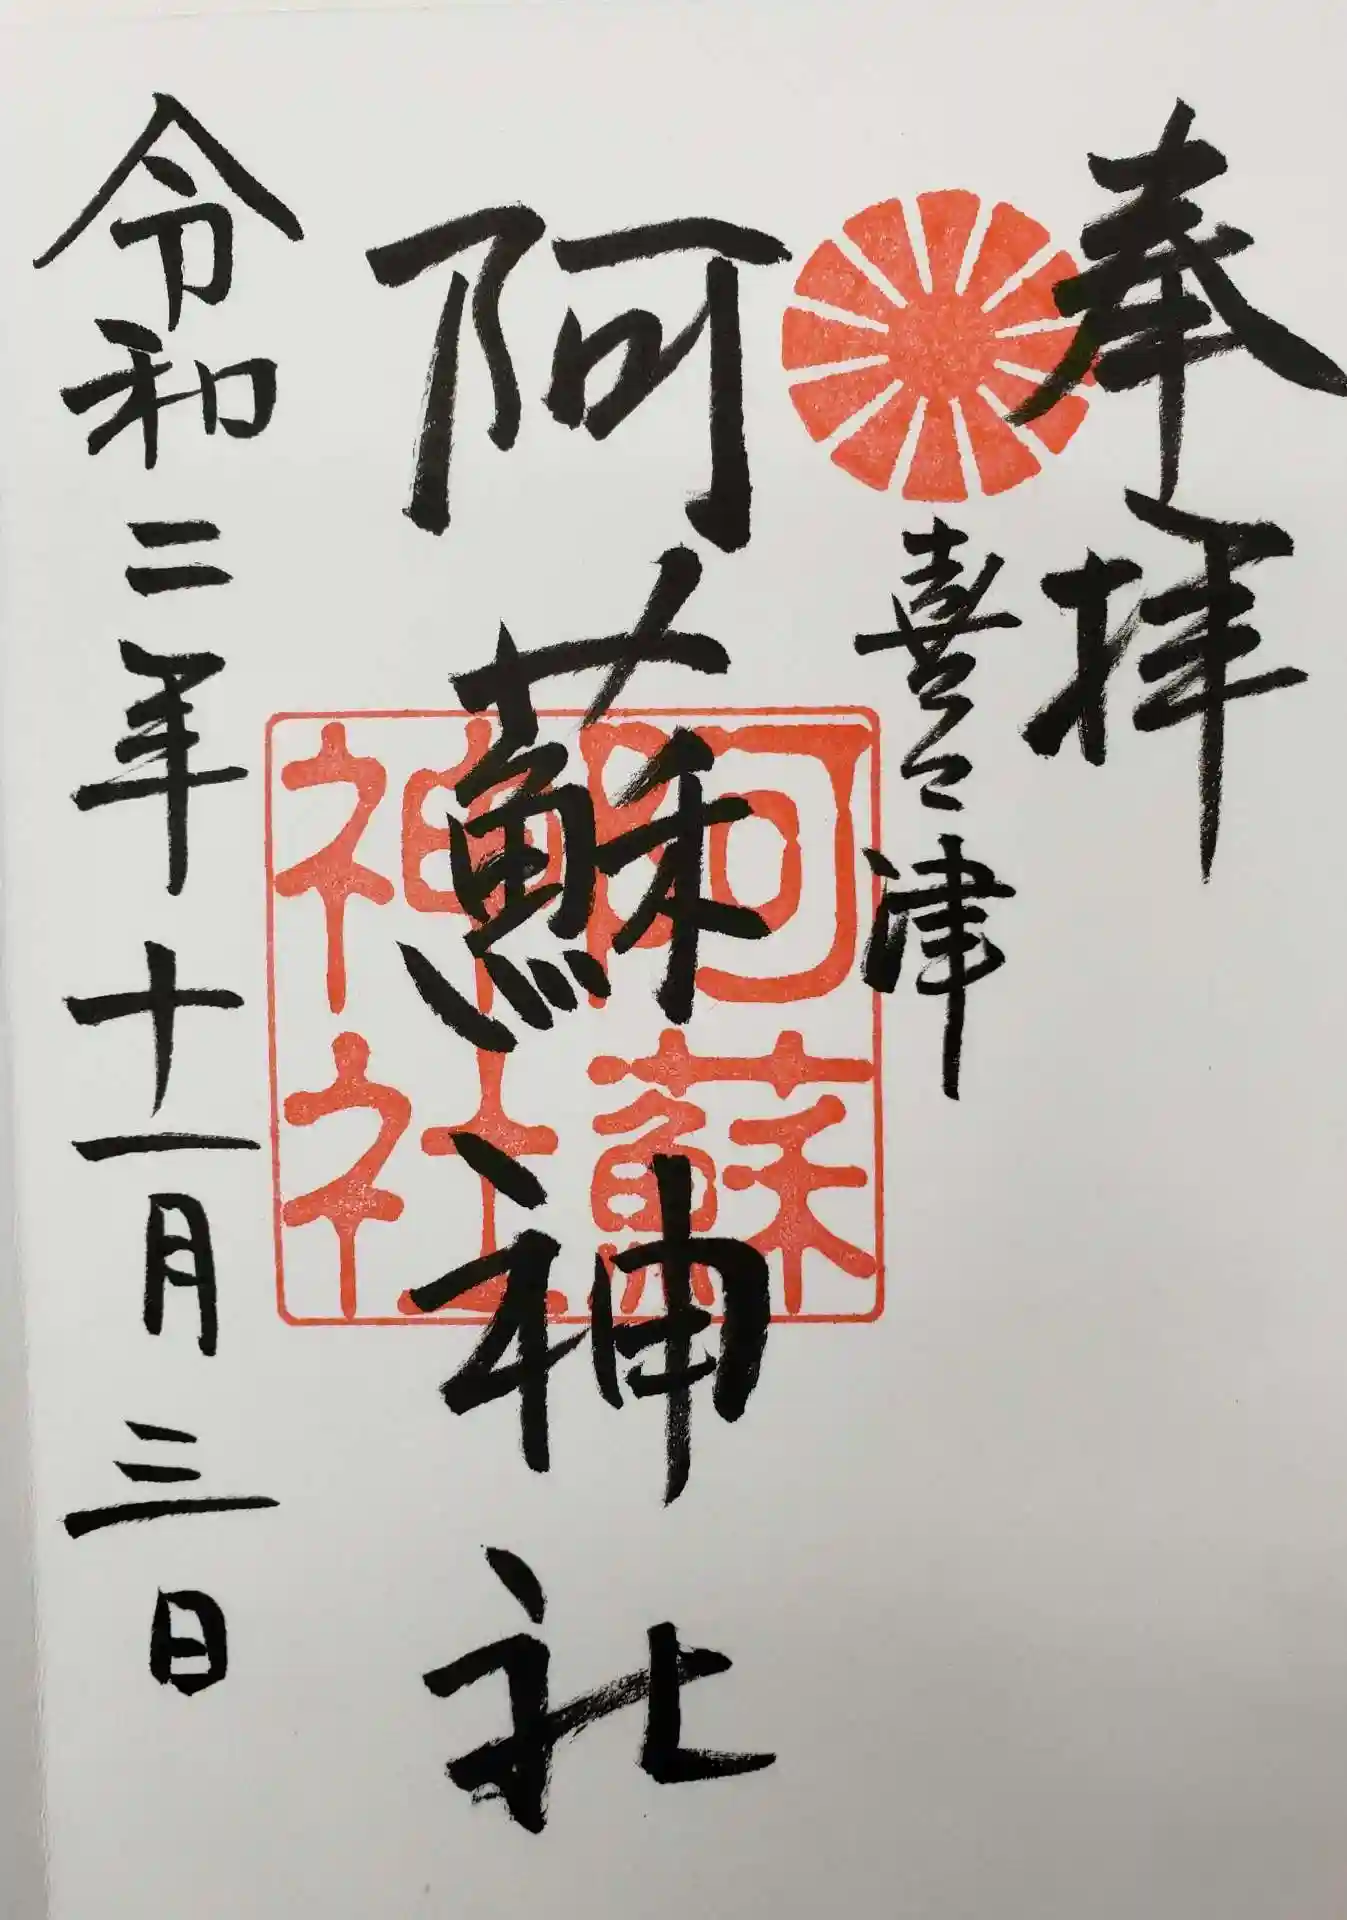 奉拝
喜々津
阿蘇神社
阿蘇
神社
令和二年十一月三日